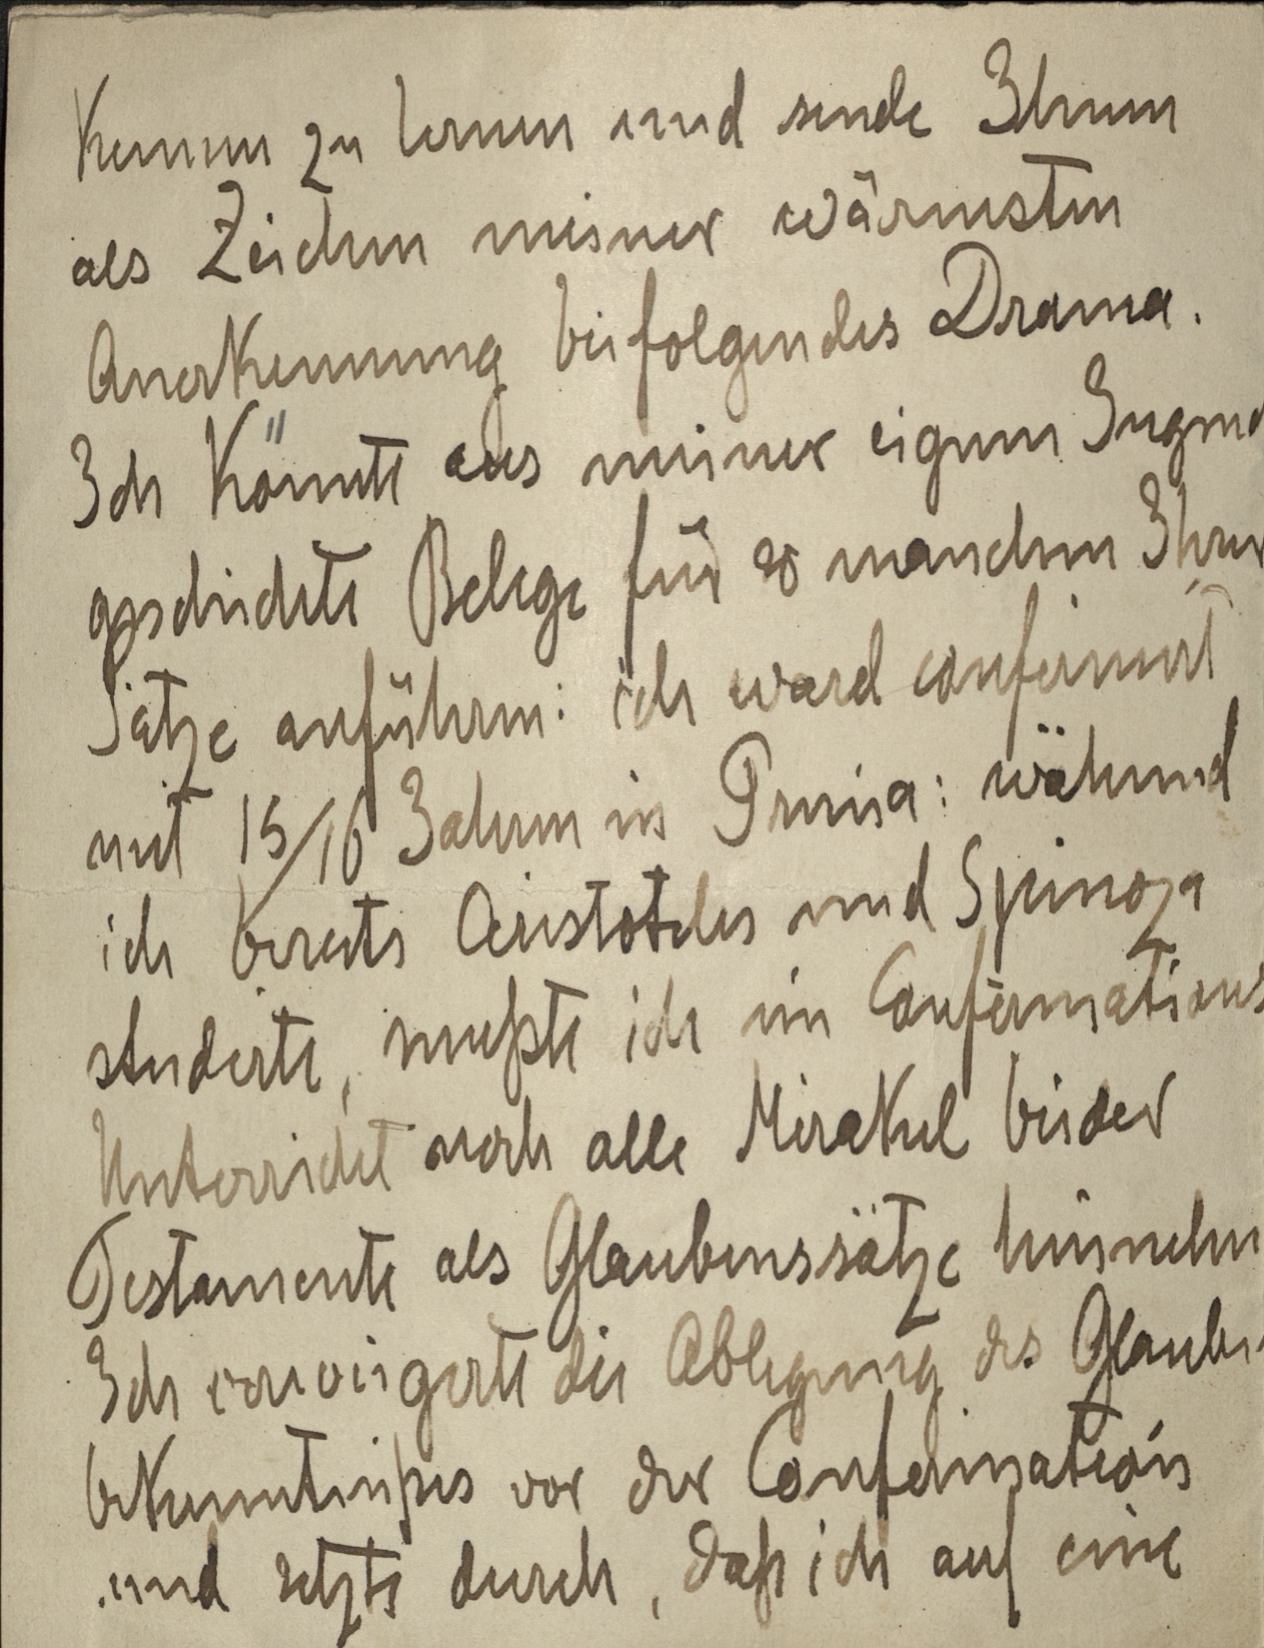 kennen zu lernen und sende Ihnen
als Zeichen meiner wärmsten
Anerkennung beifolgendes Drama.
Ich könnte aus meiner eigenen Jugend
geschichte Belege für so manchen Ihrer
Sätze anführen: ich ward confirmirt
mit 15/16 Jahren in : während
ich bereits Aristoteles und Spinoza
studierte, mußte ich im Confirmations
Unterricht noch alle Mirakel beider
Testamente als Glaubenssätze hinnehm
Ich verweigerte die Ablegung des Glauben
bekenntnißes vor der Confirmation
und setzte durch, daß ich auf eine